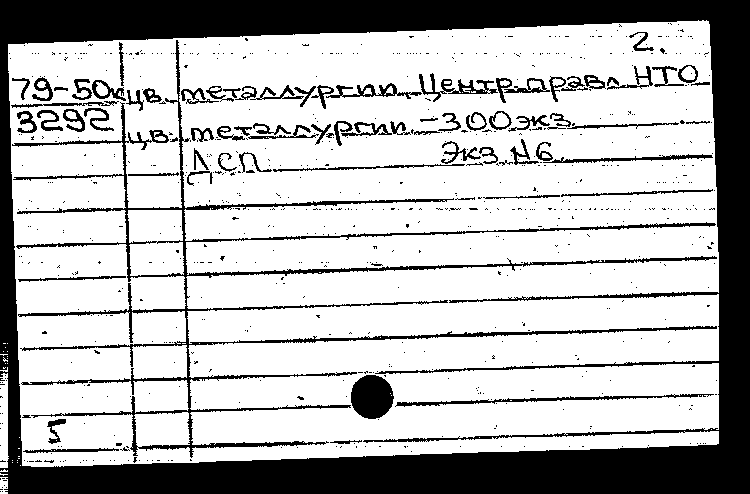 2.
79-50к цв. металлургии, Центр. правл. НТО
3292 цв. металлургии. -300 экз.
ДСП Экз. №6.
5